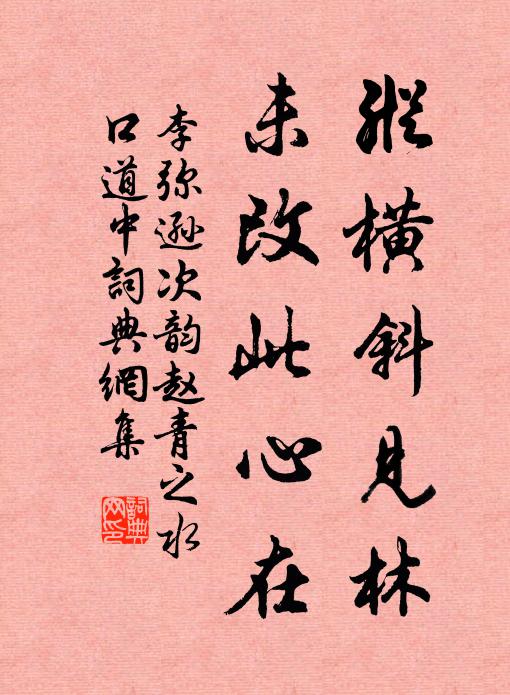 縱橫斜見林
未改此心在
李弥遜次韵赵青之水
口道中詞典網集
詞典
网印